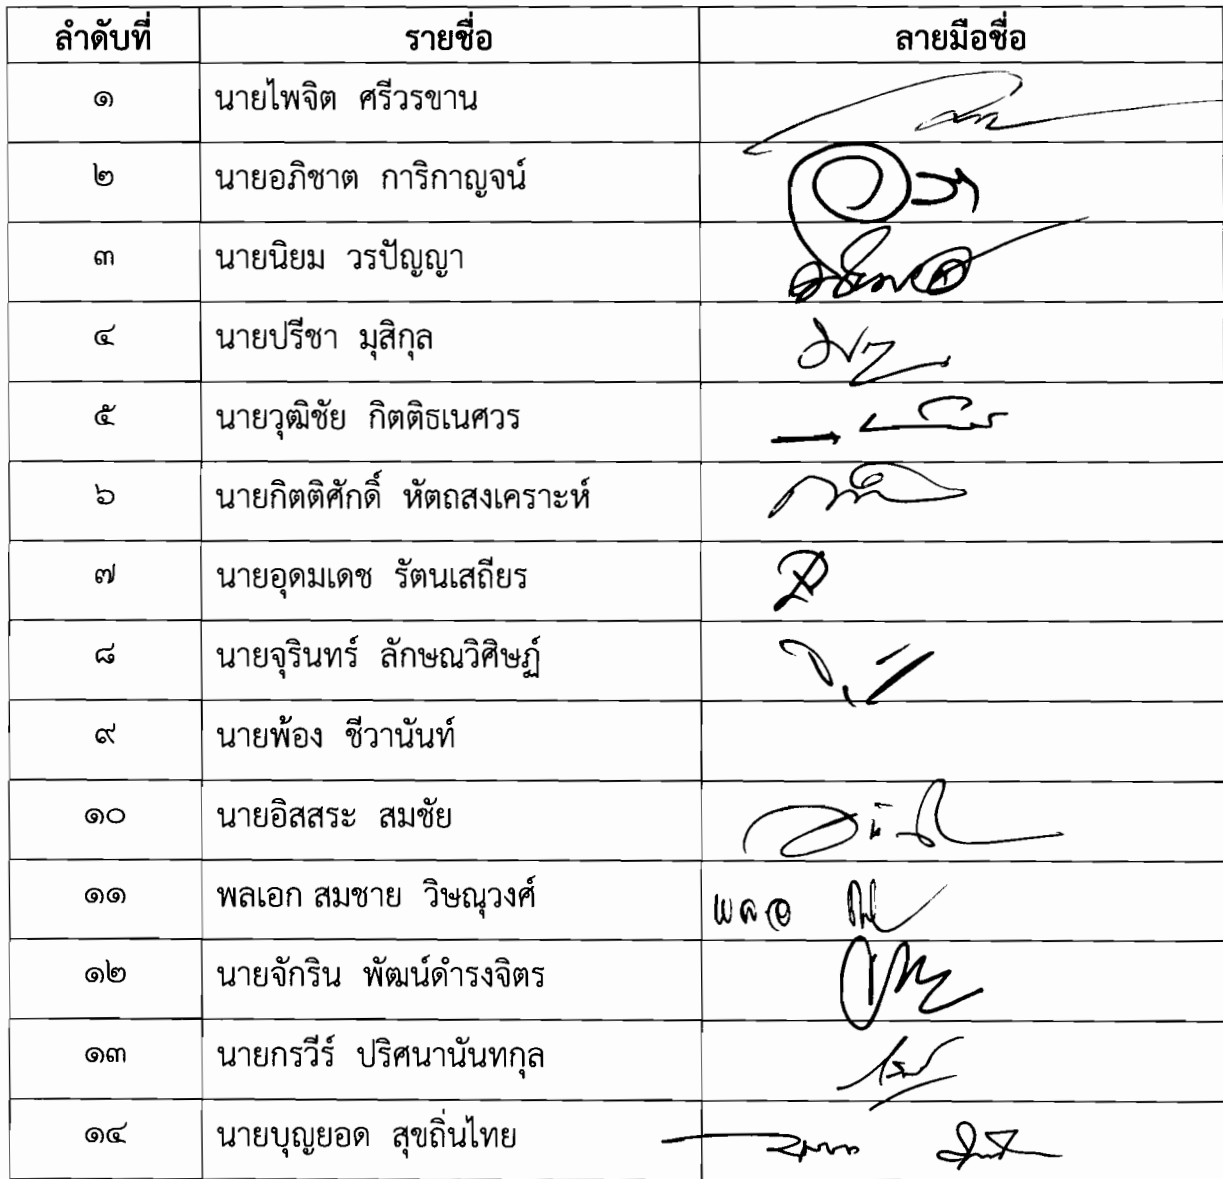 ลำดับที่ รายชื่อ ลายมือชื่อ
๑ นายไพจิต ศรีวรขาน
๒ นายอภิชาต การิกาญจน์
๓ นายนิยม วรปัญญา
๔ นายปรีชา มุสิกุล
๕ นายวุฒิชัย กิตติธเนศวร
๖ นายกิตติศักดิ์ หัตถสงเคราะห์
๗ นายอุดมเดช รัตนเสถียร
๘ นายจุรินทร์ ลักษณวิศิษฏ์
๙ นายพ้อง ชีวานันท์
๑๐ นายอิสสระ สมชัย
๑๑ พลเอก สมชาย วิษณุวงศ์ พลอ
๑๒ นายจักริน พัฒน์ดำรงจิตร
๑๓ นายกรวีร์ ปริศนานันทกุล
๑๔ นายบุญยอด สุขถิ่นไทย